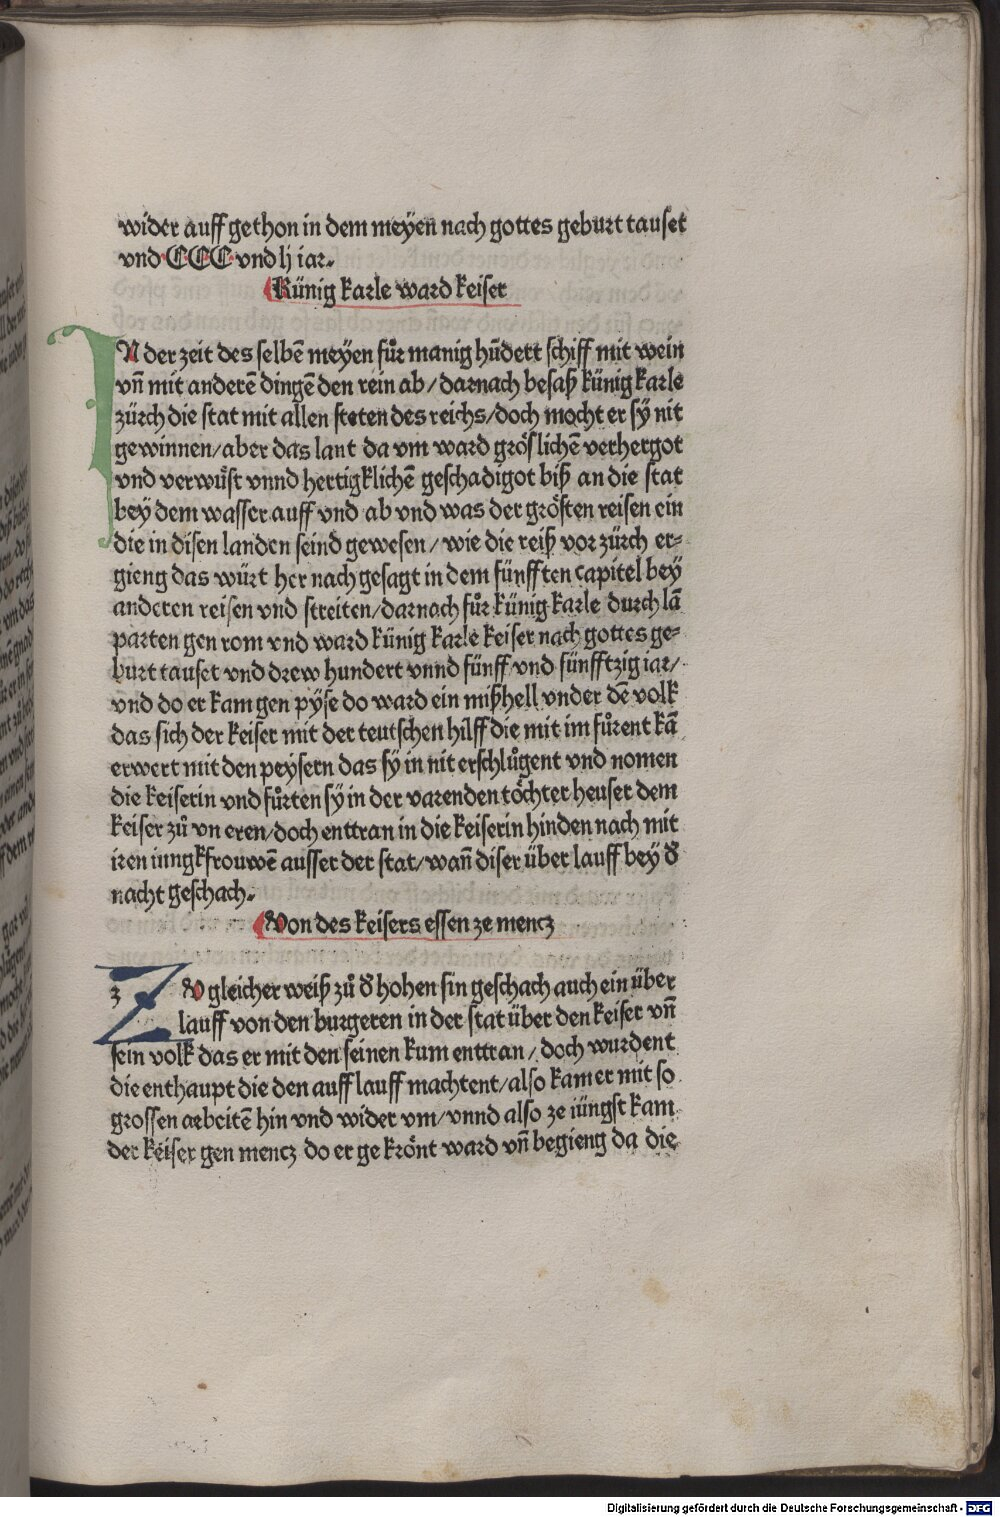 wider auff gethon in dem meÿen nach gottes geburt tauset
vnd·CCC·vnd lj iar.
Künig karle ward keiser
IN der zeit des selbē meÿen fůr manig hūdert schiff mit wein
vn̄ mit anderē dingē den rein ab/ darnach besaß künig karle
zürch die stat mit allen steten des reichs/ doch mocht er sÿ nit
gewinnen/ aber das lant da vm ward gröslichē verhergot
vnd verwůst vnnd hertigklichē geschadigot biß an die stat
beÿ dem wasser auff vnd ab vnd was der grösten reisen ein
die in disen landen seind gewesen/ wie die reiß vor zürch er=
gieng das würt her nach gesagt in dem fünfften capitel beÿ
anderen reisen vnd streiten/ darnach fůr künig karle durch lā
parten gen rom vnd ward künig karle keiser nach gottes ge=
burt tauset vnd drew hundert vnnd fünff vnd fünfftzig iar/
vnd do er kam gen pÿse do ward ein mißhell vnder dē volk
das sich der keiser mit der teutschen hilff die mit im fůrent kā
erwert mit den peÿsern das sÿ in nit erschlůgent vnd nomen
die keiserin vnd fůrten sÿ in der varenden töchter heuser dem
keiser zů vn eren/ doch enttran in die keiserin hinden nach mit
iren iungkfrouwē ausser der stat/ wan̄ diser über lauff beÿ đ
nacht geschach.
Von des keisers essen ze mencz
z ZV gleicher weiß zů đ hohen sin geschach auch ein über
lauff von den burgeren in der stat über den keiser vn̄
sein volk das er mit den seinen kum enttran/ doch wurdent
die enthaupt die den auff lauff machtent/ also kam er mit so
grossen arbeitē hin vnd wider vm/ vnnd also ze iüngst kam
der keiser gen mencz do er ge krönt ward vn̄ begieng da die
Digitalisierung gefördert durch die Deutsche Forschungsgemeinschaft - DFG